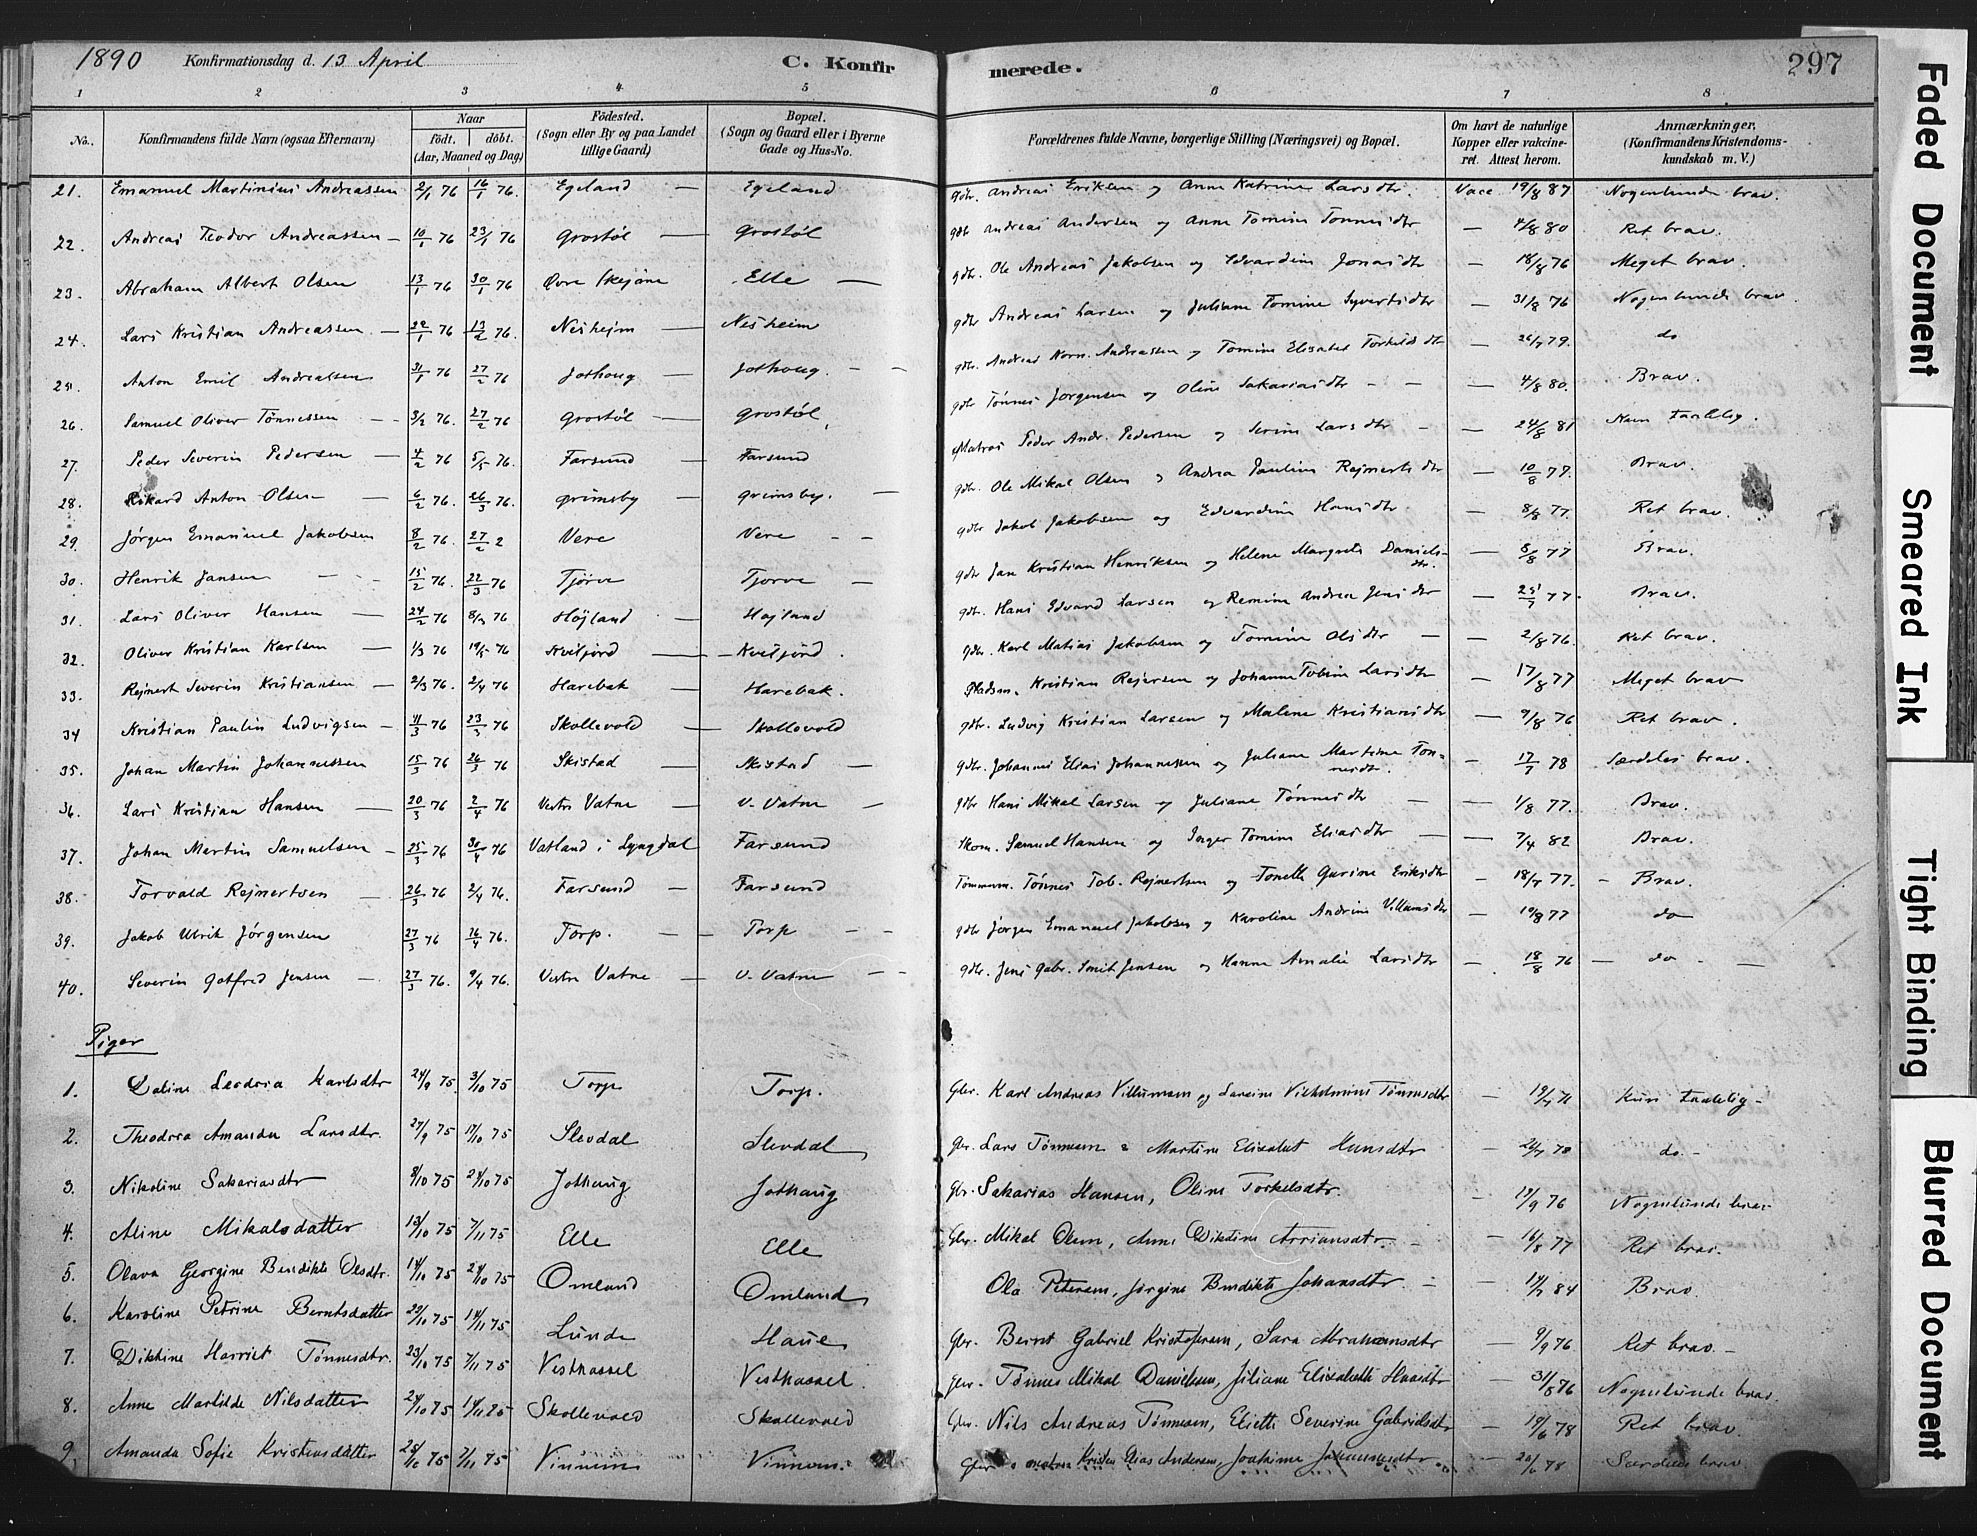 1890 Konfirmationsdag d. 13 April C. Konfirmerede. 297
1 2 3 4 5 6 7 8
No. Konfirmandens fulde Navn (ogsaa Efternavn) Naar født. døbt. (Aar, Maaned og Dag) Fødested. (Sogn eller By og paa Landet tillige Gaard) Bopæl. (Sogn og Gaard eller i Byerne Gade og Hus-No. Forældrenes fulde Navne, borgerlige Stilling (Næringsvei) og Bopæl. Om havt de naturlige Kopper eller vakcineret. Attest herom. Anmærkninger. (Konfirmandens Kristendomskundskab m. V.)
21. Emanuel Martinius Andreassen 2/1 76 16/1 76. Egeland — Egeland gdbr. Andreas Eriksen og Anne Katrine Larsdtr. Vacc 19/8 87 Nogenlunde brav.
22. Andreas Teodor Andreassen — 10/1 76 23/1 76 Grostøl — Grostøl gdb Andreas Andersen og Anne Tomine Tønnesdtr — 4/8 80 Ret brav.
23. Abraham Albert Olsen 13/1 76 30/1 76 Øvre Skejane Elle — gdbr. Ole Andreas Jakobsen og Edvardine Jonasdtr — 18/8 76 Meget brav.
24. Lars Kristian Andreassen — 22/1 76 13/2 76. Nesheim — Nesheim gdbr Andreas Larsen og Juliane Tomine Syvertsdtr — 31/8 76 Nogenlunde brav.
25. Anton Emil Andreassen 31/1 76 27/2 76 Jothoug — Jothoug. — gdbr. Andreas Korn. Andreassen og Tomine Elisabet Torkildsdtr — 26/7 79. do
26. Samuel Oliver Tønnessen — 3/2 76. 27/2 76 Grostøl — Grostøl gdbr Tønnes Jørgensen og Oline Sakariasdtr — — 4/8 80. Brav.
27. Peder Severin Pedersen — 4/2 76 5/5 76. Farsund — Farsund Matros Peder Andr. Pedersen og Serine Larsdtr — — 24/8 81 Kun Taalelig.
28. Rikard Anton Olsen — 6/2 76. 26/3 76. Grimsby — Grimsby. — gdbr. Ole Mikal Olsen og Andrea Pauline Rejnertsdtr — 10/8 77. Brav.
29. Jørgen Emanuel Jakobsen 8/2 76. 27/2 2 Vere Vere — — gdbr Jakob Jakobsen og Edvardine Hansdtr — 8/8 77. Ret brav.
30. Henrik Jansen — 15/2 76. 22/3 76 Tjørve Tjorve — gdbr Jan Kristian Henriksen og Helene Margrete Danielsdtr. — 8/8 77 Brav.
31. Lars Oliver Hansen — 24/2 76 8/3 76 Højland Højland gdbr. Hans Edvard Larsen og Remine Andrea Jensdtr — 25/7 77. Brav.
32. Oliver Kristian Karlsen — 1/3 76 14/5 76 Kviljord — Kviljord. gdbr. Karl Matias Jakobsen og Tomine Olsdtr — — 2/8 76. Ret brav.
33. Rejnert Severin Kristiansen — 2/3 76. 2/4 76 Harebak — Harebak. Pladsm. Kristian Rejersen og Johanne Tobine Larsdtr — 17/8 77 Meget brav
34 Kristian Paulin Ludvigsen — 11/3 76 23/3 76 Skollevold — Skollevold gdbr. Ludvig Kristian Larsen og Malene Kristiansdtr — 9/8 76 Ret brav.
35. Johan Martin Johannessen 15/3 76 26/3 76 Skistad — Skistad — gdbr. Johannes Elias Johannessen og Juliane Martine Tønnesdtr. — 17/7 78 Særdeles brav.
36. Lars Kristian Hansen — 20/3 76 2/4 76 Vestre Vatne — V. Vatne — gdbr Hans Mikal Larsen og Juliane Tønnesdtr — — 1/8 77. Brav.
37. Johan Martin Samuelsen — 25/3 76 30/4 76 Vatland i Lyngdal Farsund Skom. Samuel Hansen og Inger Tomine Eliasdtr — — 7/4 82 Brav.
38. Torvald Rejnertsen — 26/3 76 2/4 76. Farsund — Farsund Tømmerm. Tønnes Tob. Rejnertsen og Tonette Gurine Eriksdtr — 18/7 77. — Brav.
39. Jakob Ulrik Jørgensen 27/3 76 16/4 76. Torp. — Torp — — gdbr Jørgen Emanuel Jakobsen og Karoline Andrine Villumsdtr — 10/8 77 do
40. Severin Gotfred Jensen — 27/3 76. 9/4 76. Vestre Vatne — V. Vatne — — gdbr. Jens Gabr. Smit Jensen og Hanne Amalie Larsdtr — 18/8 76 — do — —
Piger
1. Daline Leodora Karlsdtr 24/9 75 3/10 75 Torp Torp. Gbr. Karl Andreas Villumsen og Laveine Vilhelmine Tønnesdtr — 19/7 71 Kun Taalelig —
2. Theodora Amanda Larsdtr. 27/9 75 17/10 75 Slevdal Slevdal Gbr. Lars Tønnesen & Martine Elisabet Hansdtr — 24/7 78 do. —
3. Nikoline Sakariasdtr 8/10 75 24/10 75 Jothaug Jothaug Gbr. Sakarias Hansen, Oline Torkelsdtr. — 19/9 76 Nogenlunde brav
4. Aline Mikalsdatter 13/10 75 7/11 75 Elle Elle Gbr. Mikal Olsen, Anne Dikdine Arriansdtr. — — 16/8 77 Ret brav.
5. Olava Georgine Bendikte Olsdtr. 14/10 75 24/10 75 Omland Omland Ola Petersen, Jørgine Bendikte Johansdtr. — — 14/7 84 Brav.
6. Karoline Petrine Berntsdatter 22/10 75 14/11 75 Lunde Haue Gbr. Bernt Gabriel Kristofersen, Sara Abrahamsdtr — 9/9 76 Ret brav. —
7. Dikkine Harriet Tønnesdtr. 23/10 75 7/11 75 Vesthassel Vesthassel. Gbr. Tønnes Mikal Danielsen, Juliane Elisabeth Hansdtr — 31/8 76 Nogenlunde brav.
8. Anne Martilde Nilsdatter 24/10 75 14/11 75 Skollevold Skollevold Gbr. Nils Andreas Tønnesen, Eliette Severine Gabrielsdtr — 19/6 78 Ret brav.
9. Amanda Sofie Kristensdatter 25/10 75 7/11 75 Vinnem Vinnem. Gbr & matros Kristen Elias Andersen, Joakime Johannesdtr — 20/6 78 Særdeles brav.
Faded Document
Smeared Ink
Tight Binding
Blurred Document